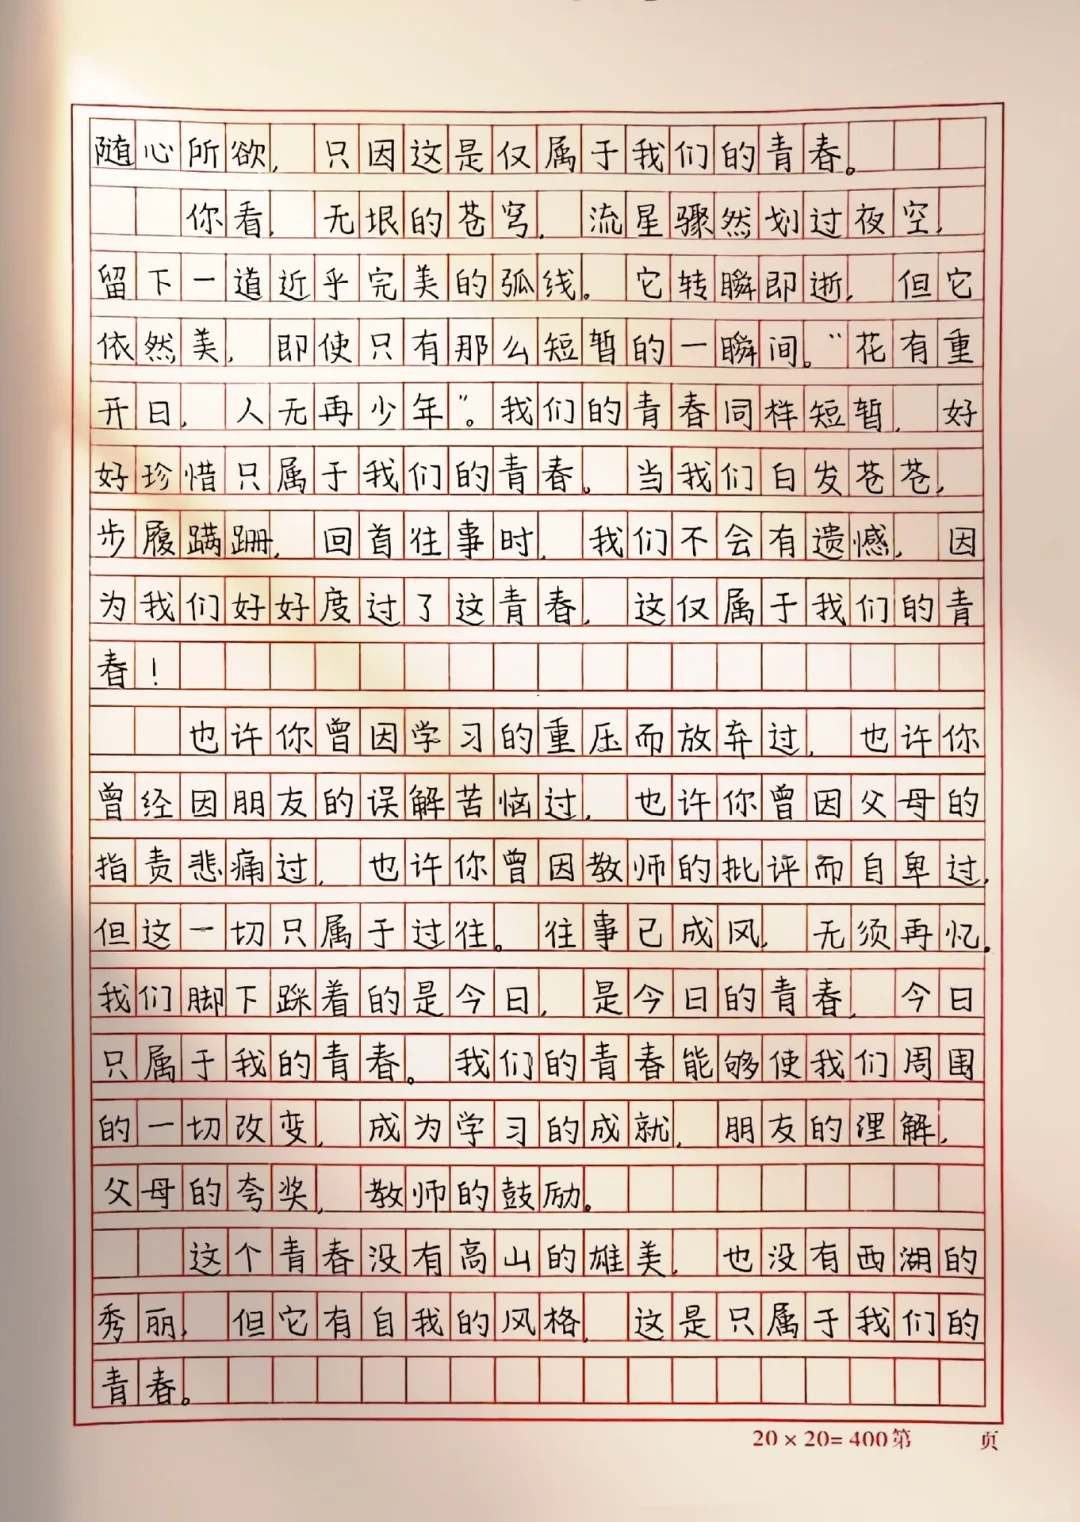 随心所欲，只因这是仅属于我们的青春。
你看，无垠的苍穹，流星骤然划过夜空，
留下一道近乎完美的弧线。它转瞬即逝，但它
依然美，即使只有那么短暂的一瞬间。“花有重
开日，人无再少年”。我们的青春同样短暂，好
好珍惜只属于我们的青春。当我们白发苍苍，
步履蹒跚，回首往事时，我们不会有遗憾，因
为我们好好度过了这青春，这仅属于我们的青
春！
也许你曾因学习的重压而放弃过，也许你
曾经因朋友的误解苦恼过，也许你曾因父母的
指责悲痛过，也许你曾因教师的批评而自卑过，
但这一切只属于过往。往事已成风，无须再忆。
我们脚下踩着的是今日，是今日的青春，今日
只属于我的青春。我们的青春能够使我们周围
的一切改变，成为学习的成就，朋友的理解，
父母的夸奖，教师的鼓励。
这个青春没有高山的雄美，也没有西湖的
秀丽，但它有自我的风格，这是只属于我们的
青春。
20×20=400 第 页